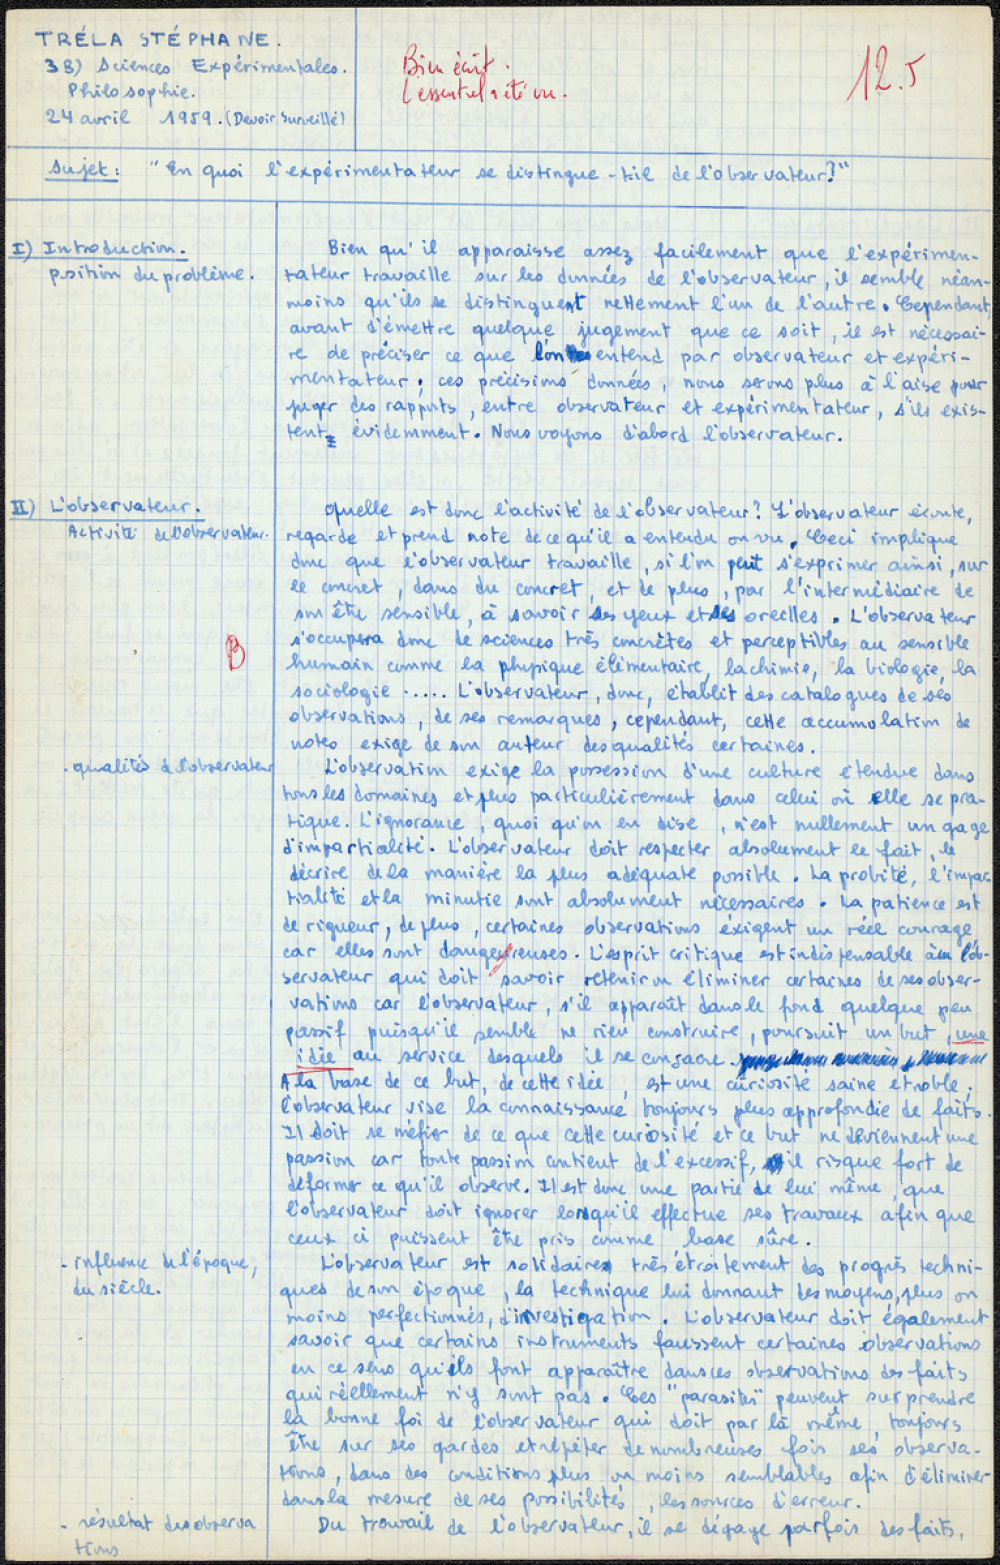 TRÉLA STÉPHANE.
38) Sciences Expérimentales.
Philosophie.
24 avril 1959. (Devoir Surveillé)
Bien écrit.
L'essentiel a été vu.
12.5
Sujet : "En quoi l'expérimentateur se distingue-t-il de l'observateur?"
I) Introduction.
position du problème.
Bien qu'il apparaisse assez facilement que l'expérimen-
tateur travaille sur les données de l'observateur, il semble néan-
moins qu'ils se distinguent nettement l'un de l'autre. Cependant,
avant d'émettre quelque jugement que ce soit, il est nécessai-
re de préciser ce que l'on entend par observateur et expéri-
mentateur ; ces précisions données, nous serons plus à l'aise pour
juger des rapports, entre observateur et expérimentateur, s'ils exis-
tent, évidemment. Nous voyons d'abord l'observateur.
II) L'observateur.
Activité de l'observateur.
Quelle est donc l'activité de l'observateur? L'observateur écoute,
regarde et prend note de ce qu'il a entendu ou vu. Ceci implique
donc que l'observateur travaille, si l'on peut s'exprimer ainsi, sur
le concret, dans du concret, et de plus, par l'intermédiaire de
son être sensible, à savoir ses yeux et ses oreilles. L'observateur
s'occupera donc de sciences très concrètes et perceptibles au sensible
B
humain comme la physique élémentaire, la chimie, la biologie, la
sociologie ..... L'observateur, donc, établit des catalogues de ses
observations, de ses remarques, cependant, cette accumulation de
notes exige de son auteur des qualités certaines.
. qualités de l'observateur
L'observation exige la possession d'une culture étendue dans
tous les domaines et plus particulièrement dans celui où elle se pra-
tique. L'ignorance, quoi qu'on en dise, n'est nullement un gage
d'impartialité. L'observateur doit respecter absolument le fait, le
décrire de la manière la plus adéquate possible. La probité, l'impar-
tialité et la minutie sont absolument nécessaires. La patience est
de rigueur, de plus, certaines observations exigent un réel courage
car elles sont dangereuses. L'esprit critique est indispensable à l'ob-
servateur qui doit savoir retenir ou éliminer certaines de ses obser-
vations car l'observateur, s'il apparaît dans le fond quelque peu
passif puisqu'il semble ne rien construire, poursuit un but, une
idée au service desquels il se consacre.
A la base de ce but, de cette idée, est une curiosité saine et noble ;
l'observateur vise la connaissance toujours plus approfondie de faits.
Il doit se méfier de ce que cette curiosité et ce but ne deviennent une
passion car toute passion contient de l'excessif, il risque fort de
déformer ce qu'il observe. Il est donc une partie de lui même, que
l'observateur doit ignorer lorsqu'il effectue ses travaux afin que
ceux ci puissent être pris comme base sûre.
- influence de l'époque,
du siècle.
L'observateur est solidaire très étroitement des progrès techni-
ques de son époque, la technique lui donnant des moyens, plus ou
moins perfectionnés, d'investigation. L'observateur doit également
savoir que certains instruments faussent certaines observations
en ce sens qu'ils font apparaître dans ces observations des faits
qui réellement n'y sont pas. Ces "parasites" peuvent surprendre
la bonne foi de l'observateur qui doit par là même, toujours
être sur ses gardes et répéter de nombreuses fois ses observa-
tions, dans des conditions plus ou moins semblables afin d'éliminer
dans la mesure de ses possibilités, les sources d'erreur.
- résultat des observa
tions
Du travail de l'observateur, il se dégage parfois des faits,